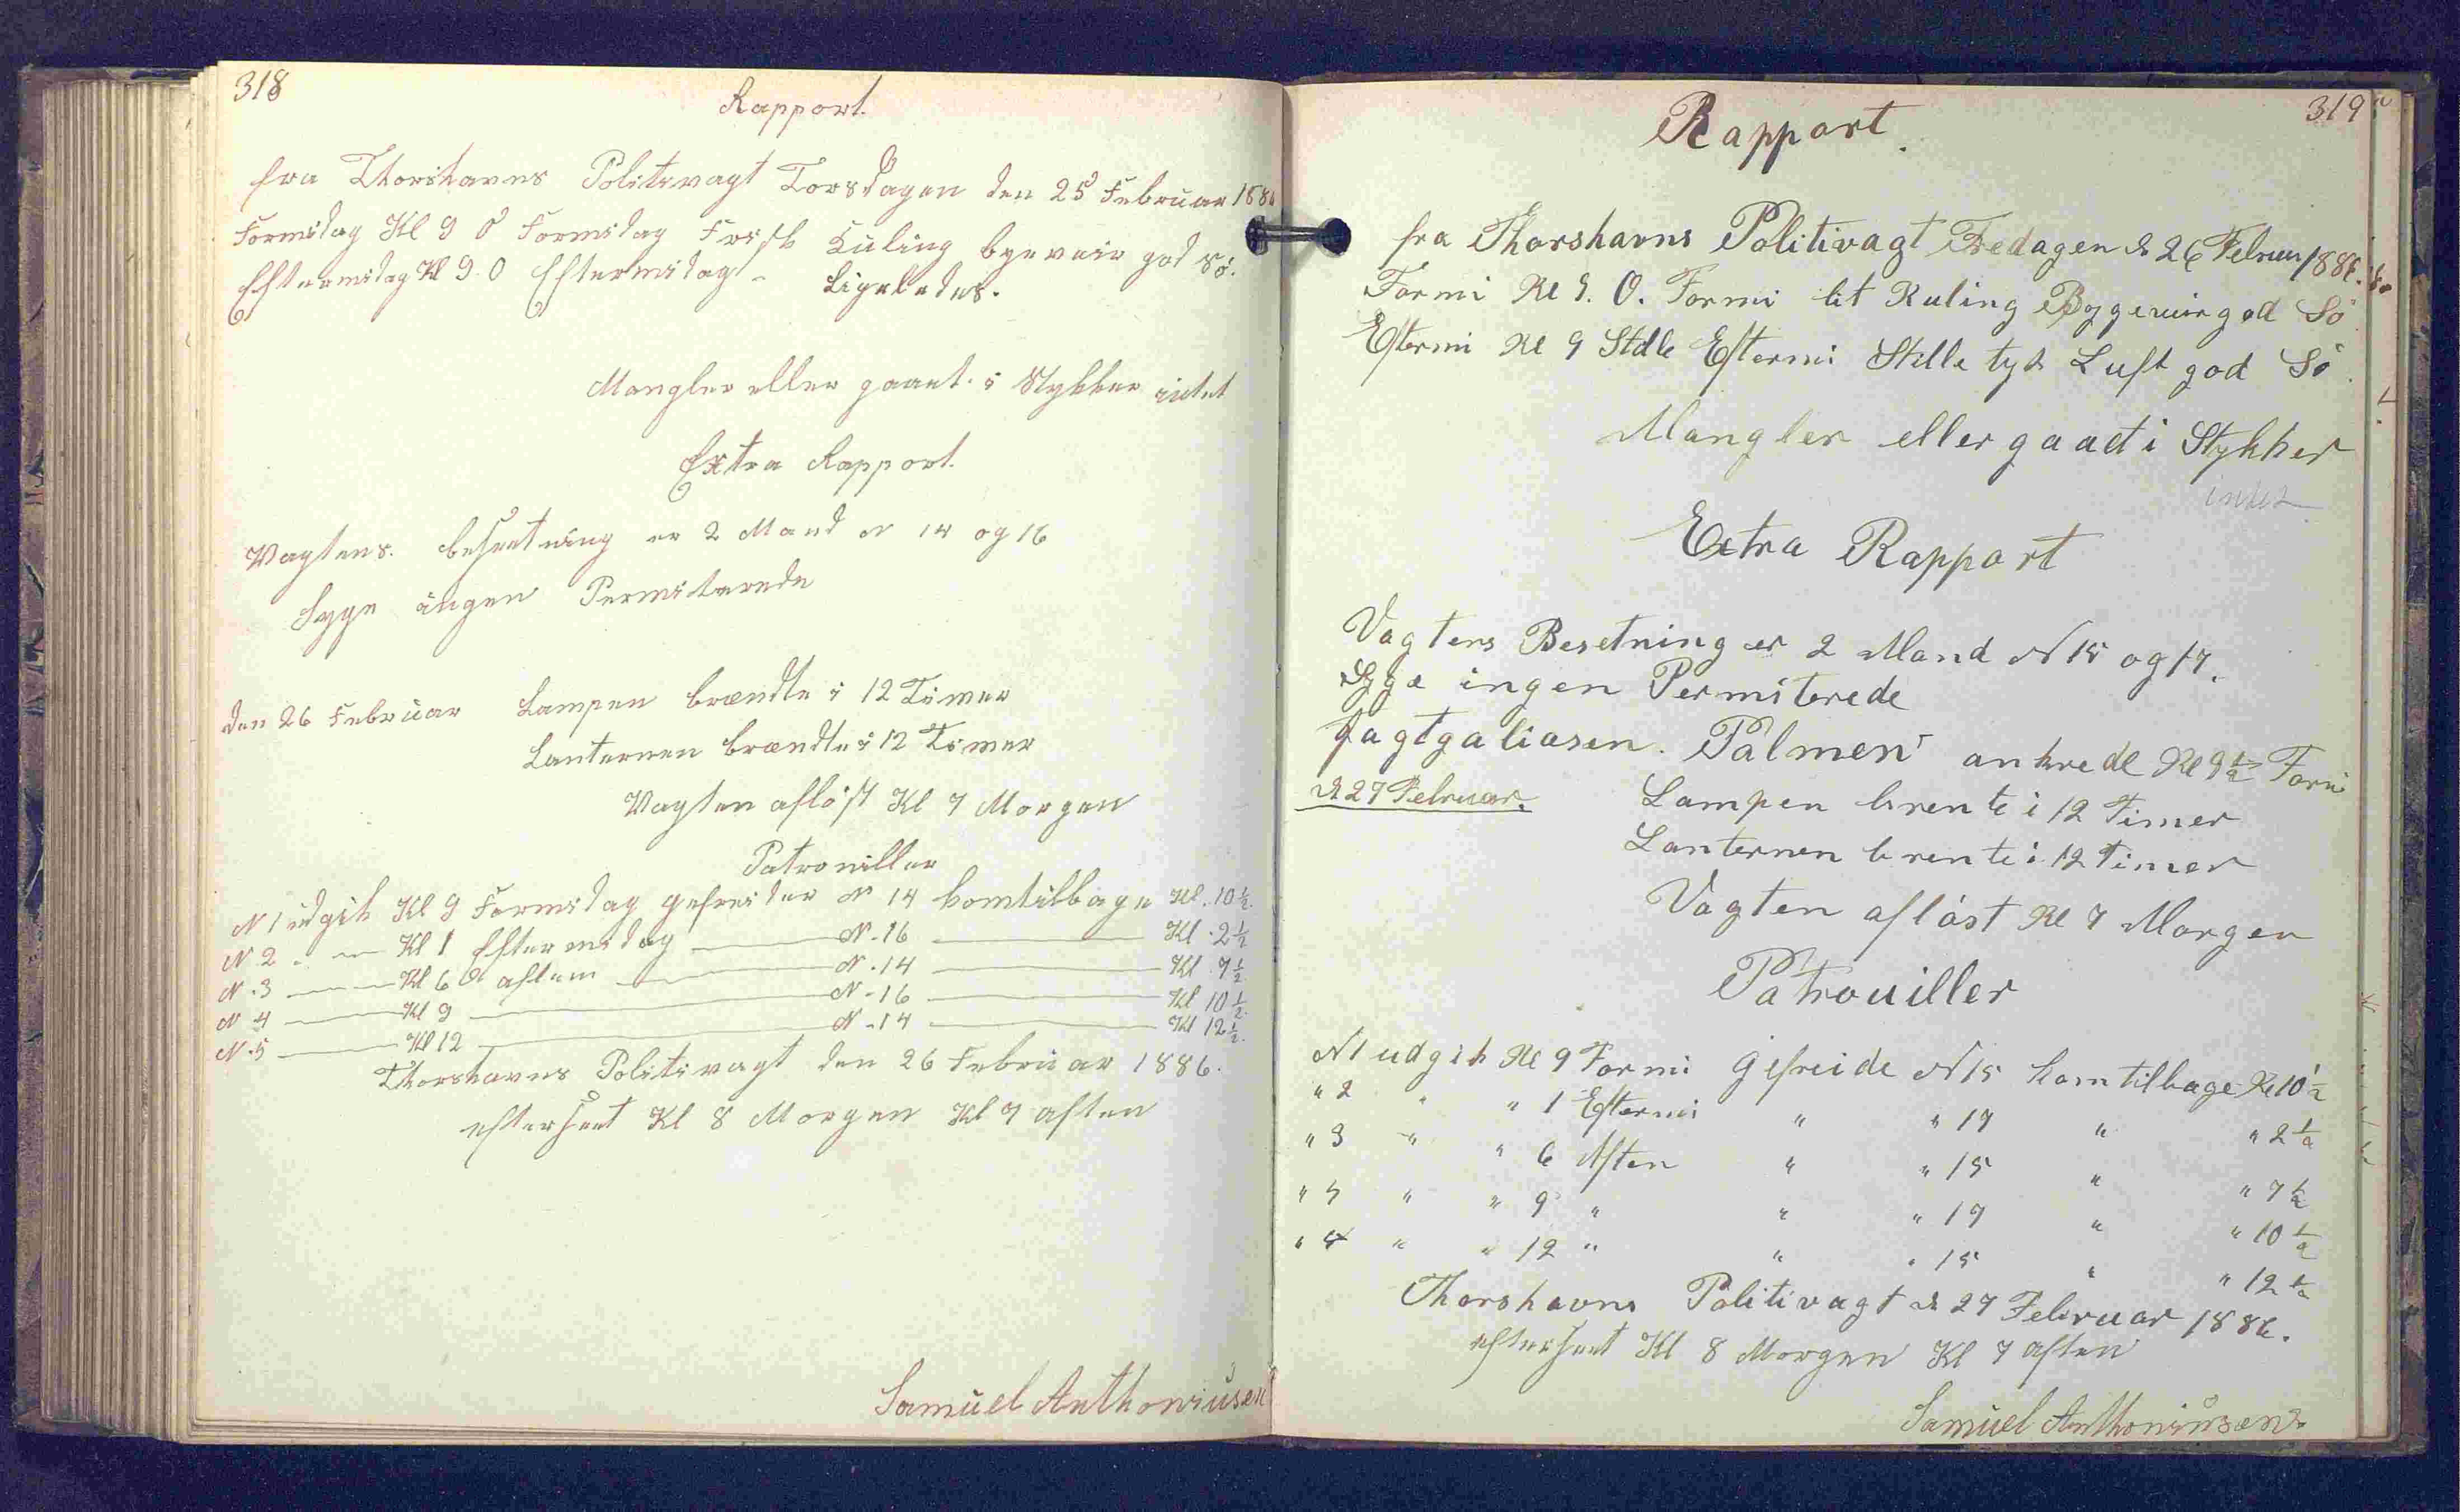 318
Rapport.
fra Thorshavns Politivagt Torsdagen den 25 Februar 1886
Formidag Kl 9 O Formidag Frisk Kuling bygeveir god Sö.
Eftermidag Kl 9. O Eftermidag - Ligeledes.
Mangler eller gaaet i Stykker intet
Extra Rapport.
Vagtens. besætning er 2 Mand N 14 og 16
Syge ingen Permiterede
den 26 Februar Lampen brændte i 12 Timer
Lanternen brændte i 12 Timer
Vagten aflöst Kl 7 Morgen
Patrouiller
N 1 udgik Kl 9 Formidag gefreider N 14 kom tilbage Kl. 10 1/2
N 2 " — Kl 1 Eftermidag — N. 16 — Kl. 2 1/2
N. 3 — Kl 6 aften — N. 14 — Kl 7 1/2
N 4 — Kl 9 — N. 16 — Kl 10 1/2
N. 5 — Kl 12 — N. 14 — Kl 12 1/2.
Thorshavns Politivagt den 26 Februar 1886.
efterseet Kl 8 Morgen Kl 7 aften
Samuel Anthoniusen
319
Rapport.
fra Thorshavns Politivagt Fredagen d 26 Februar 1886.
Formi Kl 9. O. Formi let Kuling Byggeveir god Sö
Eftermi Kl 9 Stille Eftermi Stille tyk Luft god Sö.
Mangler eller gaaet i Stykker
intet
Extra Rapport
Vagtens Besetning er 2 Mand N 15 og 17.
Syge ingen Permiterede
Jagtgaliasen. Palmen ankrede Kl 9 1/2 Formi
d 27 Februar. Lampen brente i 12 Timer
Lanternen brente i 12 Timer
Vagten aflöst Kl 7 Morgen
Patrouiller
N 1 udgik Kl 9 Formi gefreide N 15 kom tilbage Kl 10 1/2
" 2 " " 1 Eftermi " " 17 " " 2 1/2
" 3 " " 6 Aften " " 15 " " 7 1/2
" 4 " " 9 " " " 17 " " 10 1/2
" 5 " " 12 " " " 15 " " 12 1/2
Thorshavns Politivagt d 27 Februar 1886.
efterseet Kl 8 Morgen Kl 7 aften
Samuel Anthoniusen